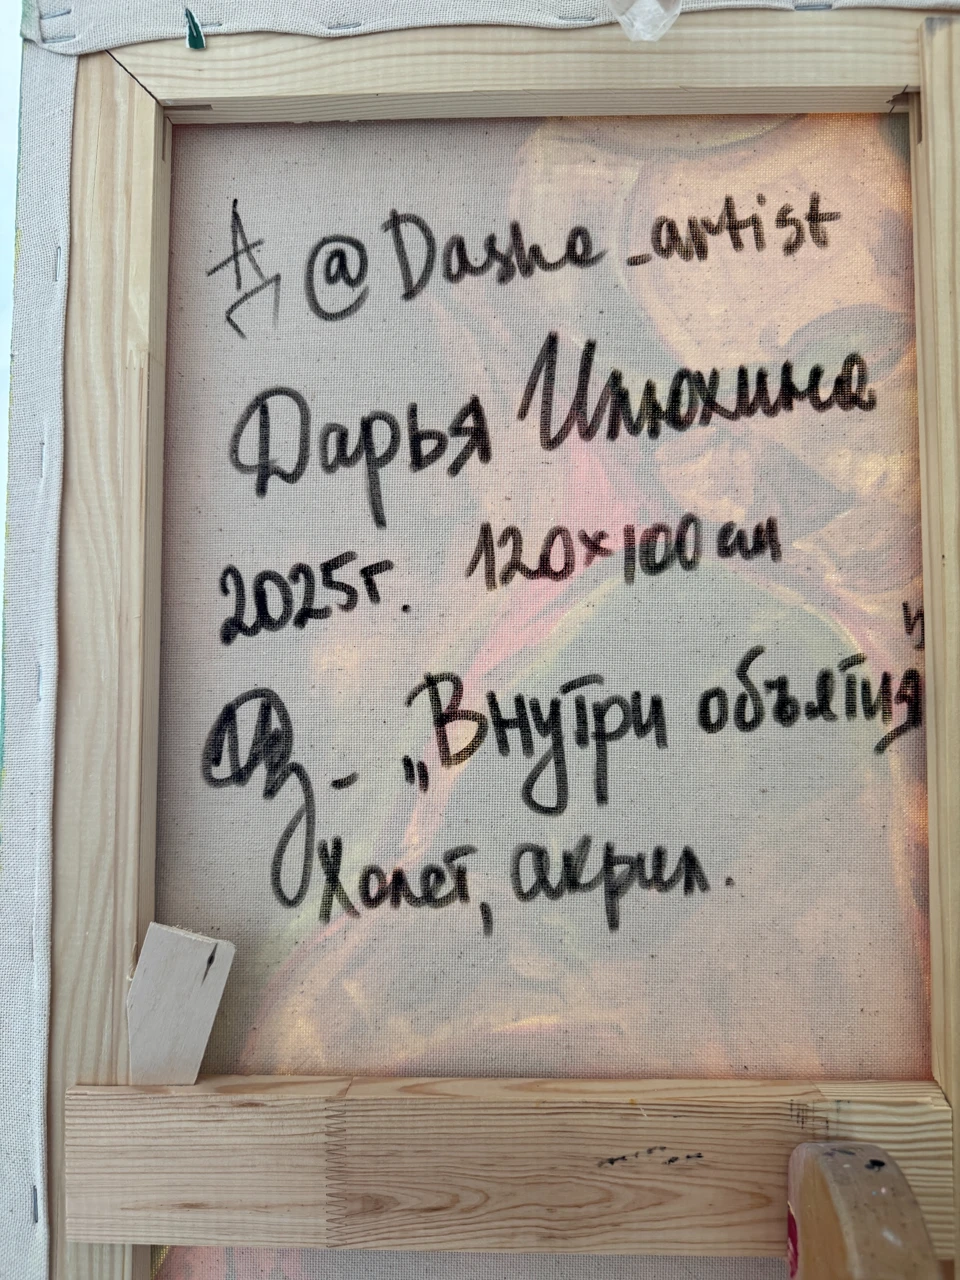 @Dasha_artist
Дарья Илюхина
2025г. 120х100 см
- „Внутри объятия"
Холст, акрил.